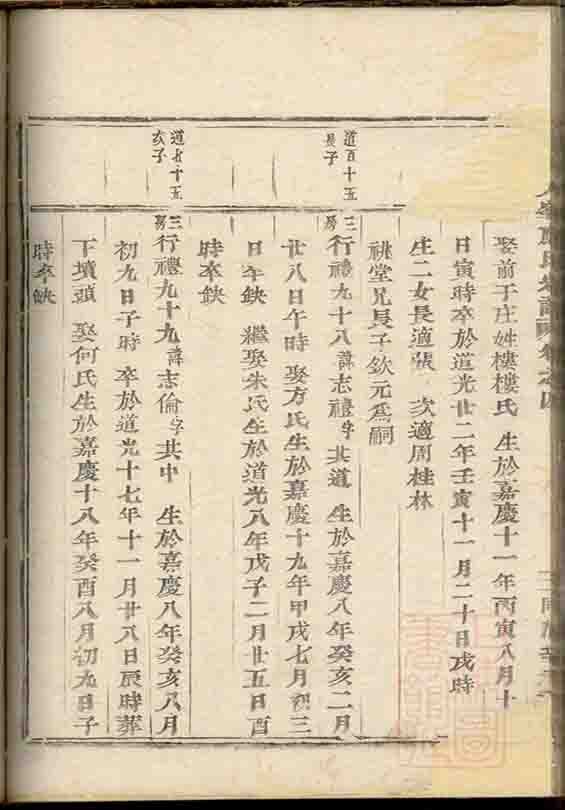 氏宗譜
卷之四
娶前于庄姓樓樓氏　生於嘉慶十一年丙寅八月十
日寅時卒於道光廿二年壬寅十一月二十日戌時
生二女長適張　次適周桂林
祧堂兄長子欽元爲嗣
道百十五
長子
三房行禮九十八諱志禮字其道　生於嘉慶八年癸亥二月
廿八日午時　娶方氏生於嘉慶十九年甲戌七月初三
日卒缺　繼娶朱氏生於道光八年戊子二月廿五日酉
時卒缺
道七十五
次子
三房行禮九十九諱志倫字其中　生於嘉慶八年癸亥八月
初九日子時　卒於道光十七年十一月廿八日辰時葬
下墳頭　娶何氏生於嘉慶十八年癸酉八月初九日子
時卒缺